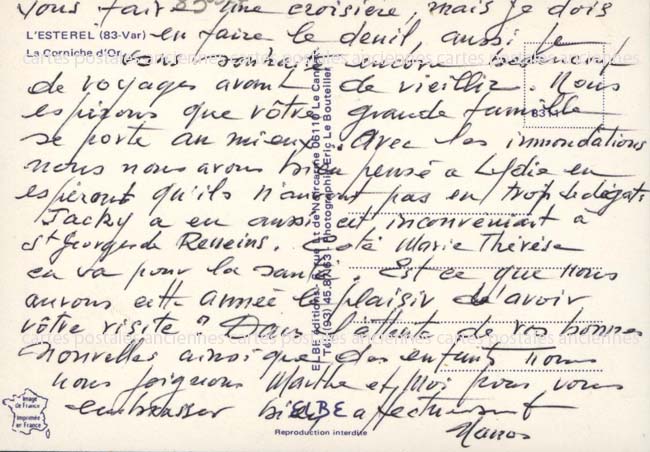 vous faire une croisière, mais je dois
en faire le deuil aussi. Je
vous souhaite encore
de voyages avant de vieillir. Nous
espérons que vôtre grande famille
se porte au mieux. Avec les innondations
nous nous avons bien pensé à Lydie en
espérant qu'ils n'auront pas eu trop de dégats
Jacky a eu aussi cet inconvénient à
St Georges de Reneins. Coté Marie Thérèse
ça va pour la santé. Est ce que nous
aurons cette année le plaisir d'avoir
vôtre visite? Dans l'attente de vos bonnes
nouvelles ainsi que des enfants nous
nous joignons Marthe et Moi pour vous
embrasser bien affectueusement
L'ESTEREL (83-Var)
La Corniche d'Or
8311
ELBE éditions - Le Cannet
Tél. (93) 45.87.63 - Photographie Eric Le Bouteiller
Image
de France
Imprimée
en France
ELBE
Reproduction interdite
cartes postales anciennes cartes postales anciennes cartes postales anciennes
cartes postales anciennes cartes postales anciennes cartes postales anciennes